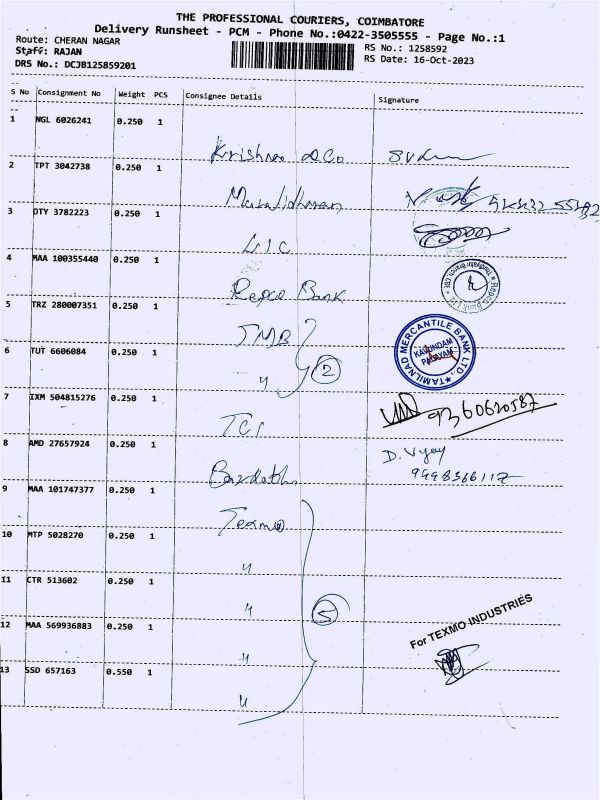 THE PROFESSIONAL COURIERS, COIMBATORE
Delivery Runsheet - PCM - Phone No.:0422-3505555 - Page No.:1
Route: CHERAN NAGAR
RS No.: 1258592
Staff: RAJAN
RS Date: 16-Oct-2023
DRS No.: DCJB125859201
S No Consignment No Weight PCS Consignee Details Signature
1 NGL 6026241 0.250 1
Krishna & Co
2 TPT 3042738 0.250 1
3 DTY 3782223 0.250 1
LIC
4 MAA 100355440 0.250 1
Repco Bank
Repco Bank Ltd
5 TRZ 280007351 0.250 1
TMB
TAMILNAD MERCANTILE BANK LTD.,
KAVUNDAM
PALAYAM
6 TUT 6606084 0.250 1
" 2
7 IXM 504815276 0.250 1
9360620587
8 AMD 27657924 0.250 1
D. Vijay
9998366117
9 MAA 101747377 0.250 1
Texmo
10 MTP 5028270 0.250 1
"
11 CTR 513602 0.250 1
" 5
12 MAA 569936883 0.250 1
"
For TEXMO INDUSTRIES
13 SSD 657163 0.550 1
"